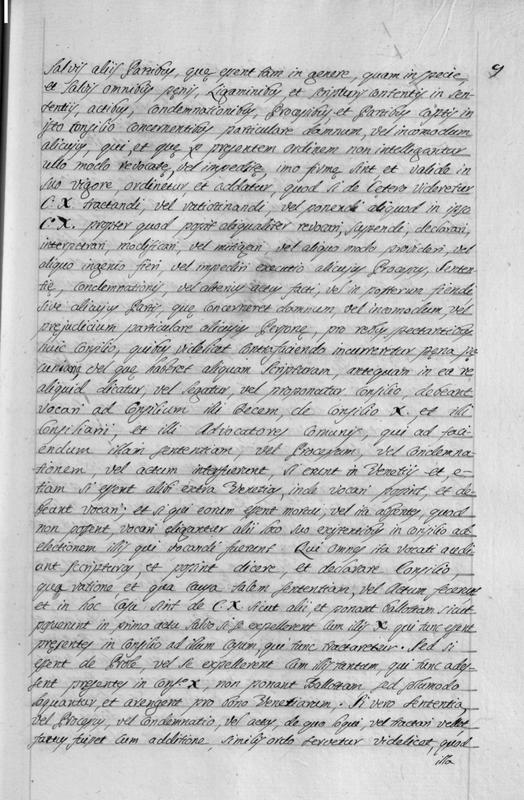 9
salvis aliis Partibus, quę essent tam in genere, quam in specie,
et salvis omnibus penis, Ligaminibus et scripturis contentis in sen-
tentiis, actibus, condemnationibus, Processibus et Partibus captis in
isto Consilio concernentibus particulare damnum, vel incomodum
alicujus, qui et quę p presentem ordinem non intelligantur
ullo modo revocatę, vel impeditę, imo firmę sint et valide in
suo vigore, ordinetur et addatur, quod si de Cetero videretur
C. X. tractandi, vel ratiocinandi, vel ponendi aliquid in ipso
C X. propter quod possit aliqualiter revocari, suspendi, declarari,
interpretari, modificari, vel mitigari vel aliquo modo provideri, vel
aliquo ingenio fieri, vel impediri executio alicujus Processus, senten-
tię, condemnationis, vel alterius actus facti, vel in posterum fiendi
sive alicujus Partis, quę concerneret damnum, vel incomodum, vel
prejudicium particulare alicujus Personę, pro rebus spectantibus
huic Consilio, quibus videlicet contrafaciendo incurreretur pena pe
cuniaria, vel quę haberet aliquam scripturam, antequam in ea re
aliquid dicatur, vel legatur, vel proponatur Consilio, debeant
vocari ad Consilium illi Decem, de Consilio X. et illi
Consiliarii, et illi Advocatores Comunis, qui ad faci-
endum illam sententiam, vel Processum, vel Condemna-
tionem, vel actum interfuerint, si erunt in Venetiis et, e-
tiam si essent alibi extra Venetias, inde vocari possint, et de-
beant vocari; et si qui eorum essent mortui, vel ita absentes, quod
non possent, vocari eligantur alii loco suo existentibus in consilio ad
electionem illis qui vocandi fuerent. Qui omnes ita vocati audi
ant scripturas et possint dicere, et declarare Consilio
qua ratione et qua causa talem sententiam, vel Actum fecerunt
et in hoc casu sint de C X sicut alii, et ponant ballotam sicut
posuerunt in primo actu salvo si se expellerent cum illis X qui tunc essent
presentes in consilio ad illum casum, qui tunc tractaretur. Sed si
essent de Prole, vel se expellerent cum illis tantum, qui tunc ades-
sent presentes in Cons.o X, non ponant ballotam sed solumodo
loquantur, et arengent pro bono Venetiarum. Si vero sententia,
vel Processus, vel Condemnatio, vel actus, de quo loqui, vel tractari vellet
factus fuisset cum additione, similis ordo servetur videlicet, quod
illa